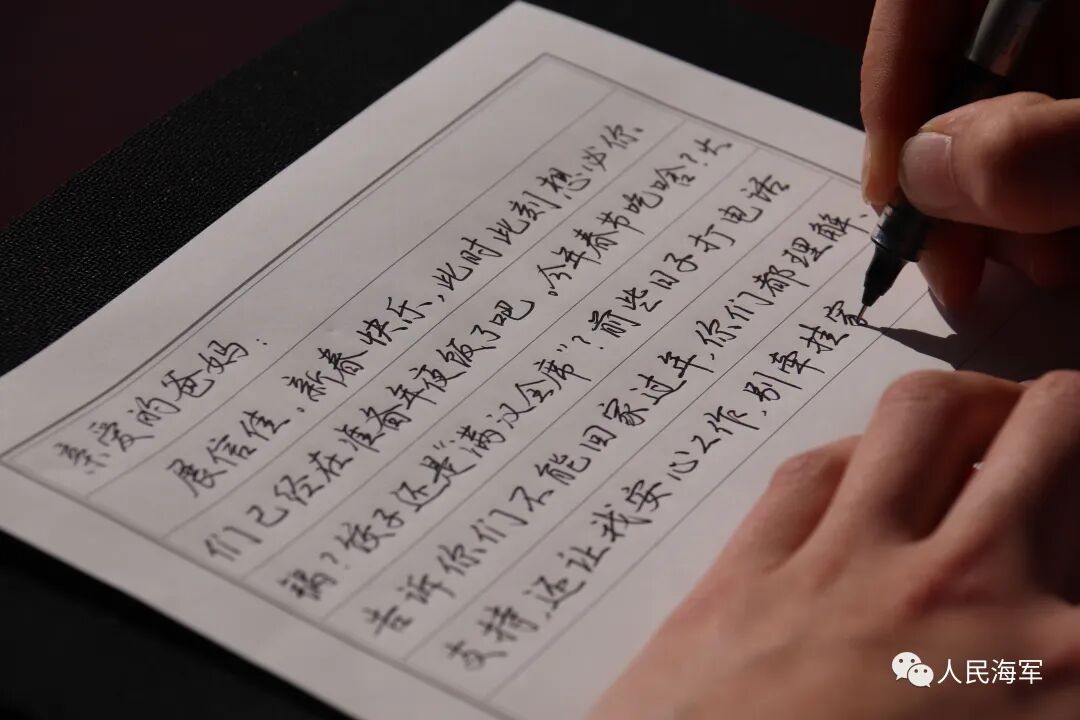 亲爱的爸妈：
展信佳，新春快乐，此时此刻想必你
们已经在准备年夜饭了吧。今年春节吃啥？火
锅？饺子还是“满汉全席”？前些日子打电话
告诉你们不能回家过年，你们都理解、
支持，还让我安心工作，别牵挂家
人民海军